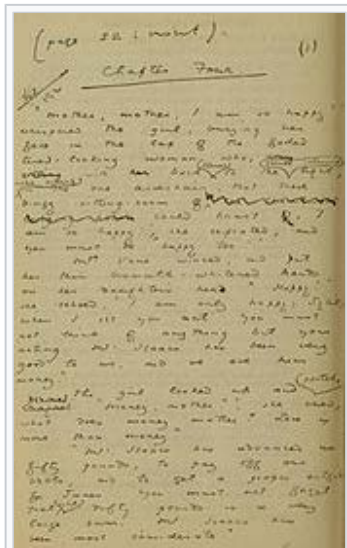 (page 22 : insert).
(1)
Chapter Four
"mother, mother, I am so happy"
whispered the girl, burying her
face in the lap of the faded
tired-looking woman who,
back to the light,
one armchair that their
dingy sitting-room
could boast of. I
am so happy", she repeated, "and
you must be happy too"
Mrs Vane winced, and put
her thin bismuth-whitened hands
on her daughter's head "Happy",
she echoed, "I am only happy, Sybil,
when I see you act. You must
not think of anything but your
acting. Mr. Isaacs has been very
good to us. and we owe him
money"
The girl looked up and pouted
money, mother", she cried,
what does money matter. Love is
more than money"
"Mr. Isaacs has advanced us
fifty pounds, to pay off our
debts, and to get a proper outfit
for James. You must not forget
that. Fifty pounds is a very
large sum. Mr. Isaacs has
been most considerate"